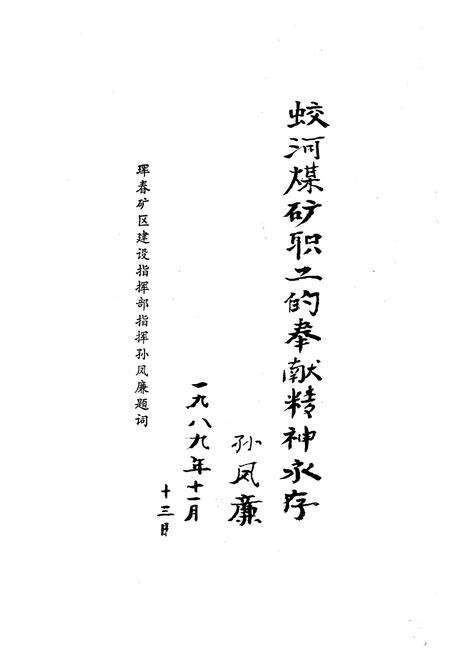 蛟河煤矿职工的奉献精神永存
孙凤廉
一九八九年十一月
十三日
珲春矿区建设指挥部指挥孙凤廉题词